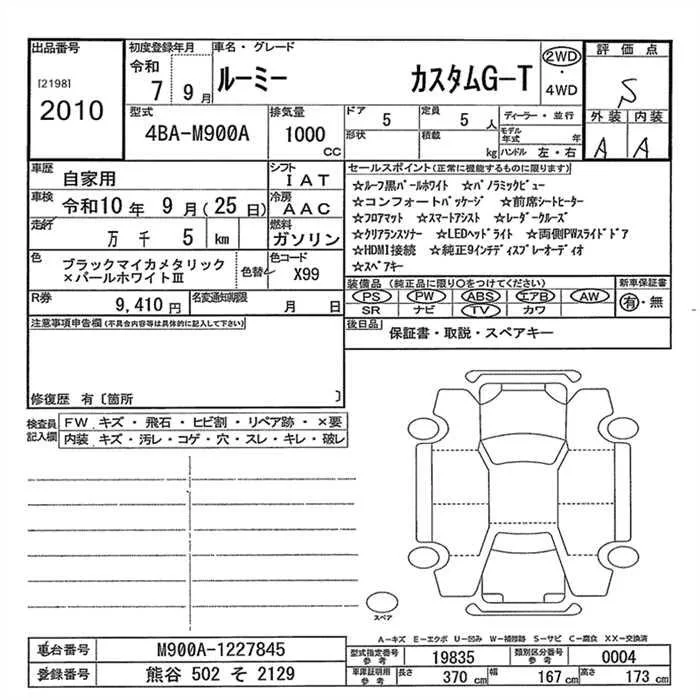 出品番号 初度登録年月 車名・グレード 評価点
[2198] 令和 2WD
2010 7 9月 ルーミー カスタムG-T ・ S
4WD
型式 排気量 ドア 5 定員 5 人 ディーラー・並行 外装 内装
4BA-M900A 1000 CC 形状 積載 kg モデル年式 年 A A
ハンドル 左・右
車歴 自家用 シフト IAT セールスポイント(正常に機能するものに限ります)
車検 令和10年 9月(25日) 冷房 AAC ☆ルーフ黒パールホワイト ☆パノラミックビュー
☆コンフォートパッケージ ☆前席シートヒーター
走行 万 千 5 km 燃料 ガソリン ☆フロアマット ☆スマートアシスト ☆レーダークルーズ
☆クリアランスソナー ☆LEDヘッドライト ☆両側PWスライドドア
色 ブラックマイカメタリック 色替 色コード ☆HDMI接続 ☆純正9インチディスプレーオーディオ
×パールホワイトⅢ X99 ☆スペアキー
装備品 (純正品に限り○をつけてください) 新車保証書
R券 9,410円 名変通知期限 月 日 PS PW ABS エアB AW 有・無
SR ナビ TV カワ
注意事項申告欄(不具合内容等は具体的に記入して下さい) 後日品 保証書・取説・スペアキー
修復歴 有〔箇所 〕
検査員 FW キズ・飛石・ヒビ割・リペア跡・×要
記入欄 内装 キズ・汚レ・コゲ・穴・スレ・キレ・破レ
スペア
A-キズ E-エクボ U-凹み W-補修跡 S-サビ C-腐食 XX-交換済
車台番号 M900A-1227845 型式指定番号 参考 19835 類別区分番号 参考 0004
登録番号 熊谷 502 そ 2129 車庫証明用 参考 長さ 370 cm 幅 167 cm 高さ 173 cm